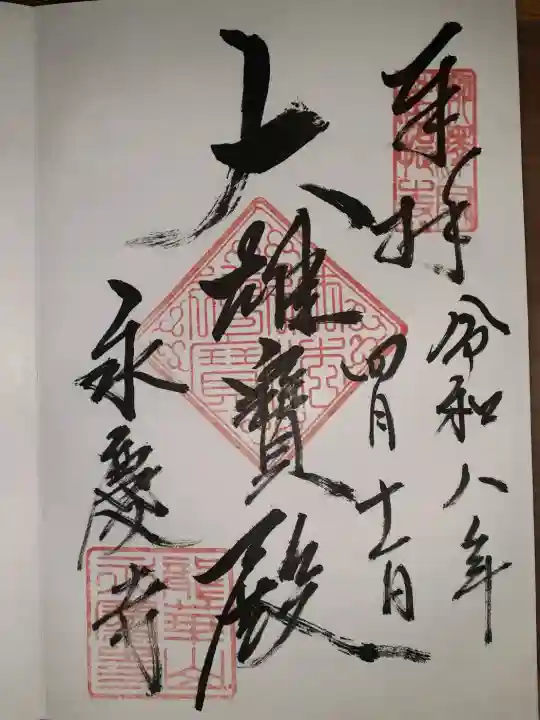 奉拝
令和八年
四月十一日
大雄寳殿
永慶寺